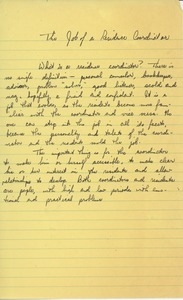 The Job of a Residence Coordinator
What is a residence coordinator? There is
no single definition — personal counselor, bookkeeper,
advisor, good listener, scold and
nag, hopefully a friend and confidant. It is a
job that evolves, as the residents become more fam-
iliar with the coordinator and vice versa. No
one can step into the job in all its facets,
because the personality and talents of the coordi-
nator and the residents mold the job.
The important thing is for the coordinator
to make him or herself accessible, to make clear
his or her interest in the residents and allow
relationships to develop. Both coordinators and residents
are people, with high and low periods with emo-
tional and practical problems